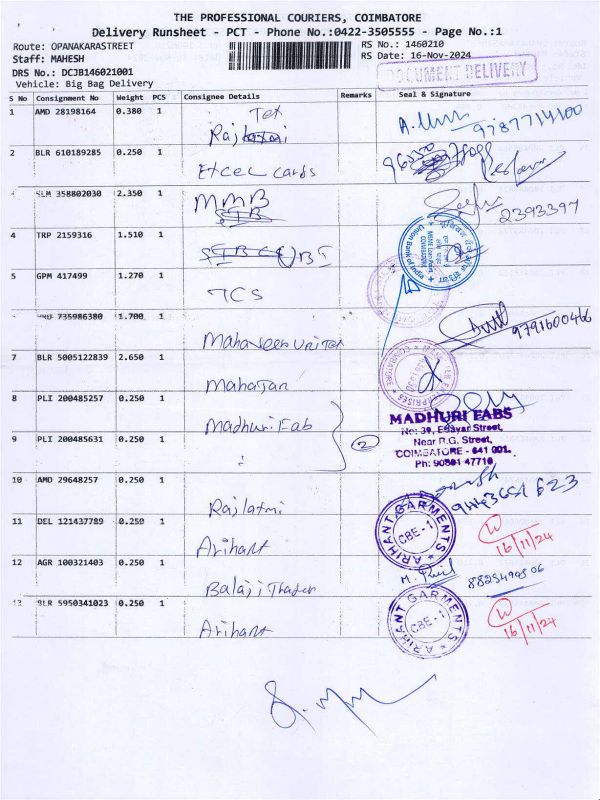 THE PROFESSIONAL COURIERS, COIMBATORE
Delivery Runsheet - PCT - Phone No.:0422-3505555 - Page No.:1
Route: OPANAKARASTREET
RS No.: 1460210
Staff: MAHESH
RS Date: 16-Nov-2024
DRS No.: DCJB146021001
DOCUMENT DELIVERY
Vehicle: Big Bag Delivery
S No Consignment No Weight PCS Consignee Details Remarks Seal & Signature
1 AMD 28198164 0.380 1 Tex
9787714100
2 BLR 610189285 0.250 1 Excel cards
358802030 2.350 1 MMB
2393397
4 TRP 2159316 1.510 1
Union Bank
5 GPM 417499 1.270 1 TCS
735986380 1.700 1 Mahaveer
9791600466
7 BLR 5005122839 2.650 1 Mahajan
8 PLI 200485257 0.250 1 Madhuri Fab
MADHURI FABS
No: 39, Street,
9 PLI 200485631 0.250 1
2
Near R.G. Street,
COIMBATORE - 641 001.
Ph: 90801 47716
10 AMD 29648257 0.250 1 Rajlaxmi
11 DEL 121437789 0.250 1 Arihant
ARIHANT GARMENTS
CBE-1
16/11/24
12 AGR 100321403 0.250 1 Balaji Trader
13 BLR 5950341023 0.250 1 Arihant
ARIHANT GARMENTS
CBE-1
16/11/24